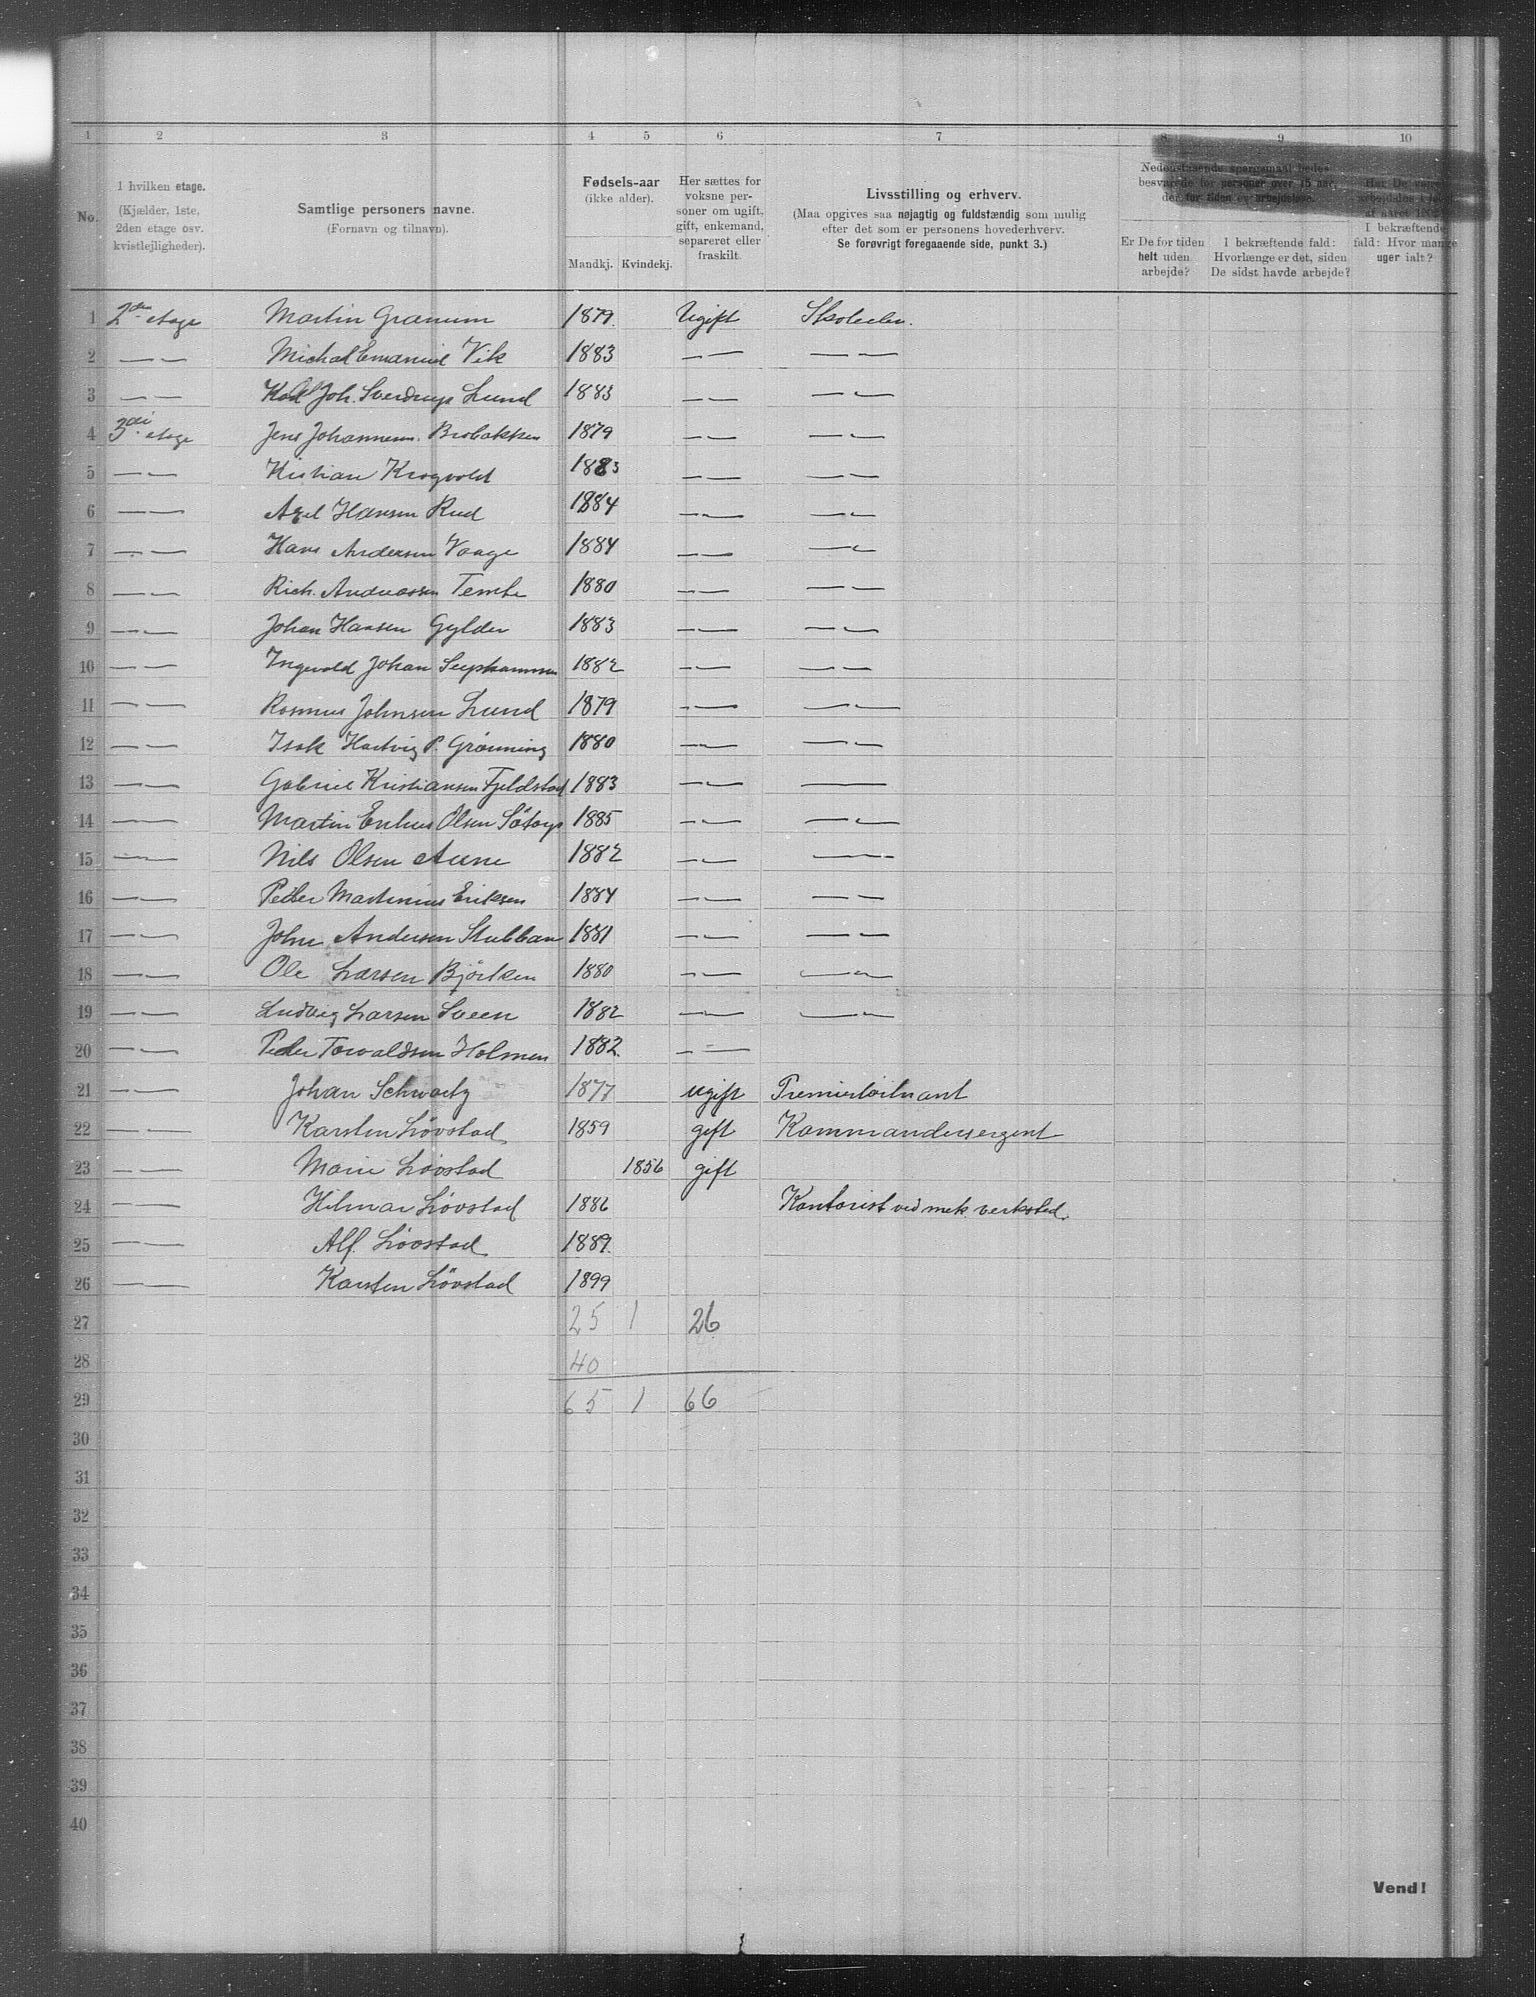 1 2 3 4 5 6 7 8 9 10
No.
I hvilken etage.
(Kjælder, 1ste,
2den etage osv.
kvistlejligheder).
Samtlige personers navne.
(Fornavn og tilnavn).
Fødsels-aar
(ikke alder).
Mandkj. Kvindekj.
Her sættes for
voksne per-
soner om ugift,
gift, enkemand,
separeret eller
fraskilt.
Livsstilling og erhverv.
(Maa opgives saa nøjagtig og fuldstændig som mulig
efter det som er personens hovederhverv.
Se forøvrigt foregaaende side, punkt 3.)
Nedenstaaende spørgsmaal bedes
besvarede for personer over 15 aar,
der for tiden er arbejdsløse.
Er De for tiden
helt uden
arbejde?
I bekræftende fald:
Hvorlænge er det, siden
De sidst havde arbejde?
Har De været
I bekræftende
fald: Hvor mange
uger ialt?
1 2den etage Martin Granum 1879 Ugift Skoleelev.
2 — — Michal Emanuel Vik 1883 — — — —
3 — — Joh. Sverdrup Lund 1883 — — — —
4 3die etage Jens Johannesen Brobakken 1879 — — — —
5 — — Kristian Krogvold 1883 — — — —
6 — — Axel Hansen Rud 1884 — — — —
7 — — Hans Andersen Vaage 1884 — — — —
8 — — Rich. Andreassen Tembe 1880 — — — —
9 — — Johan Hansen Gylder 1883 — — — —
10 — — Ingvald Johan 1882 — — — —
11 — — Rasmus Johnsen Lund 1879 — — — —
12 — — Isak Hartvig P. Grönning 1880 — — — —
13 — — Gabriel Kristiansen Fjeldstad 1883 — — —
14 — — Martin Olsen 1885 — — — —
15 — — Nils Olsen Aune 1882 — — — —
16 — — Peder Martinius Eriksen 1884 — — — —
17 — — John Andersen Stubban 1881 — — — —
18 — — Ole Larsen Björken 1880 — — — —
19 — — Ludvig Larsen Sveen 1882 — — — —
20 — — Peder Torvaldsen Holmen 1882. — —
21 — — Johan Schwartz 1877 ugift Premierløitnant
22 — — Karsten Lövstad 1859 gift Kommandersergent
23 — — Marie Lövstad 1856 gift
24 — — Hilmar Lövstad 1886 Kontorist ved mek. verksted.
25 — — Alf. Lövstad 1889.
26 — — Karsten Lövstad 1899
27 25 1 26
28 40
29 65 1 66
30
31
32
33
34
35
36
37
38
39
40
Vend!